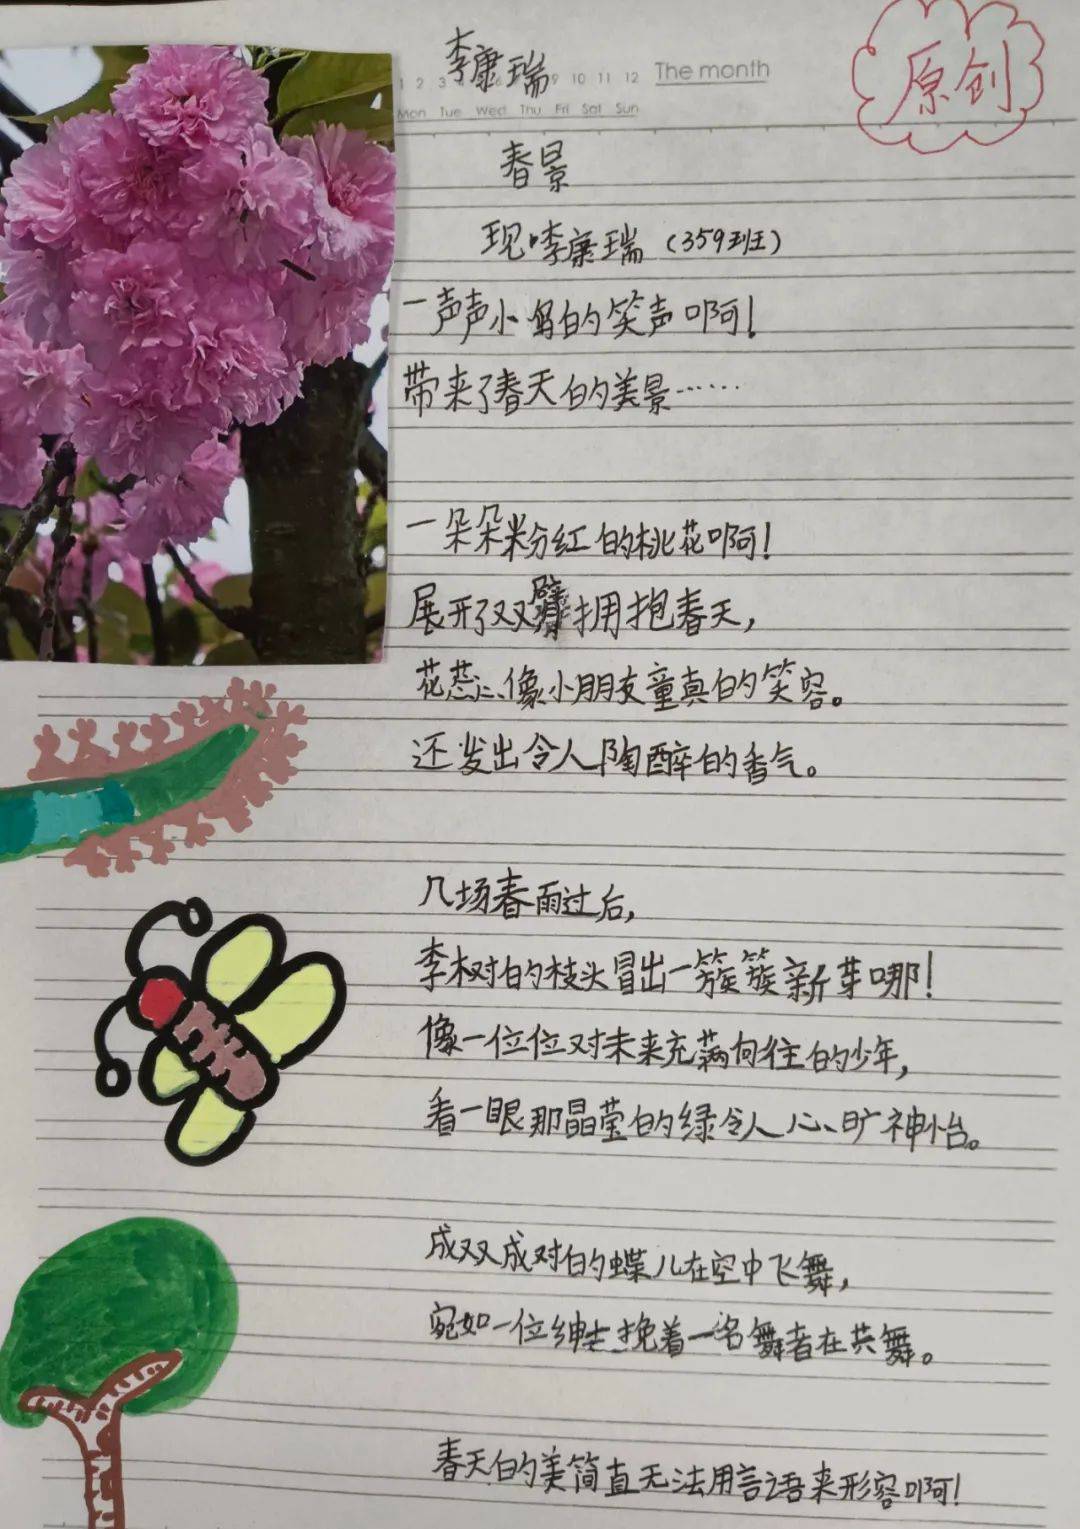 李康瑞
原创
1 2 3 9 10 11 12 The month
Mon Tue Wed Thu Fri Sat Sun
春景
现·李康瑞（359班）
一声声小鸟的笑声啊！
带来了春天的美景……
一朵朵粉红的桃花啊！
展开了双臂拥抱春天，
花蕊像小朋友童真的笑容。
还发出令人陶醉的香气。
几场春雨过后，
李树的枝头冒出一簇簇新芽哪！
像一位位对未来充满向往的少年，
看一眼那晶莹的绿令人心旷神怡。
成双成对的蝶儿在空中飞舞，
宛如一位绅士挽着一名舞者在共舞。
春天的美简直无法用言语来形容啊！